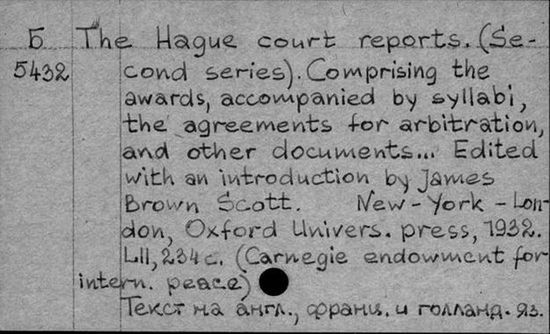 Б The Hague court reports. (Se-
5432 cond series). Comprising the
awards, accompanied by syllabi,
the agreements for arbitration,
and other documents... Edited
with an introduction by James
Brown Scott. New-York-Lon-
don, Oxford Univers. press, 1932.
LII, 234 c. (Carnegie endowment for
intern. peace)
Текст на англ., франц. и голланд. яз.